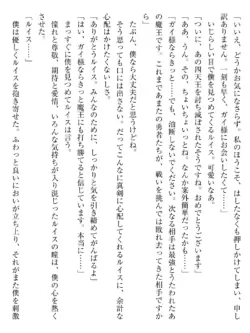 「いえ、どうかお気になさらず。私のほうこそ、たびたび押しかけてしまい、申し
訳ありません。
いじらしい目で僕を見上げるルイス。可愛いなあ。
「ついに、あの四天王を討ち滅ぼされたそうで。おめでとうございます」
「ああ、うん。そのね、ちょっとね。なんか案外簡単だったから」
「ガイ様ならきっと。ですが、油断しないでください。次なる相手は最強とうたわれるあ
の魔王です。これまであまたの勇者たちが、戦いを挑んでは敗れ去ってきた相手ですか
ら」
たぶん、僕なら大丈夫だと思うけどね。
そう思っても口には出さない。だってこんなに真剣に心配してくれるルイスに、余計な
心配はかけたくないしさ。
「ありがとうルイス。みんなのために、しっかりと気を引き締めてがんばるよ」
「はい、ガイ様ならきっと魔王にも打ち勝てると信じています。本当に……」
まっすぐに僕を見つめてルイスは言う。
憧れと尊敬、期待と愛情。いろんな気持ちが入り混じったルイスの瞳は、僕の心を熱く
させた。
「ルイス……」
僕は優しくルイスを抱き寄せた。ふわっと良いにおいが立ちのぼり、それがまた僕を刺激